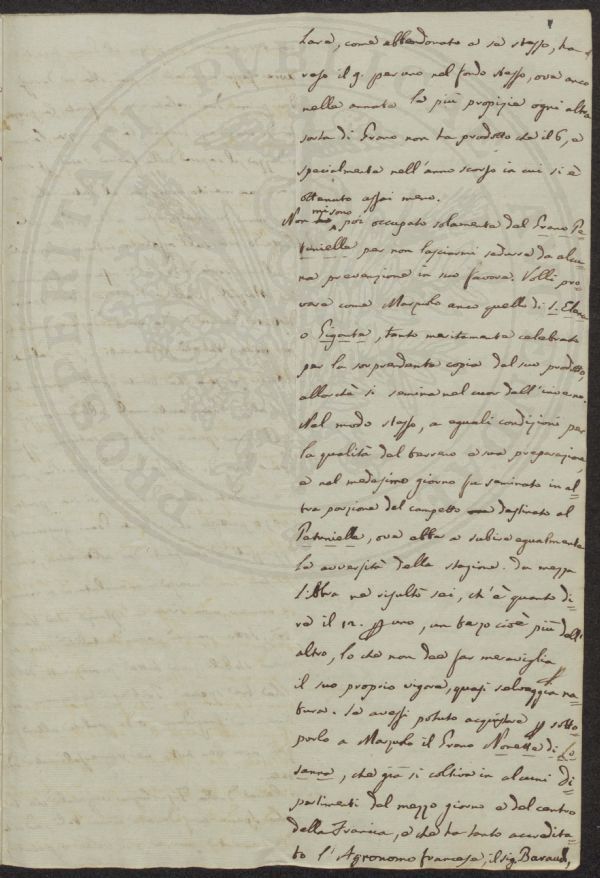 lare, come abbandonato a sè stesso, ha
reso il 9. per uno nel fondo stesso, ove anco
nelle annate le più propizie ogni altra
sorta di Grano non ha prodotto che il 6, e
specialmente nell'anno scorso in cui si è
ottenuto assai meno.
Non mi sono poi occupato solamente del Grano Pe=
tuniella per non lasciarmi sedurre da alcu=
na prevenzione in suo favore. Volli pro=
vare come Marzuolo anco quello di S. Elena
o Gigante, tanto meritamente celebrato
per la sorprendente copia del suo prodotto,
allorchè si semina nel cuor dell'inverno.
Nel modo stesso, a eguali condizioni per
la qualità del terreno e sua preparazione,
e nel medesimo giorno fu seminato in al=
tra porzione del campetto destinato al
Petuniella, ove ebbe a subire egualmente
le avversità della stagione. Da mezza
libbra ne risultò sei, ch'è quanto di=
re il 12. per uno, un terzo cioè più dell'
altro, lo che non dee far meraviglia
il suo proprio vigore, quasi selvaggia na=
tura. Se avessi potuto acquistare per sotto=
porlo a Marzuolo il Grano Nonette di Lo=
sanna, che già si coltiva in alcuni Di=
partimenti del mezzo giorno e del centro
della Francia, e che ha tanto accredita=
to l'Agronomo francese, il sig.